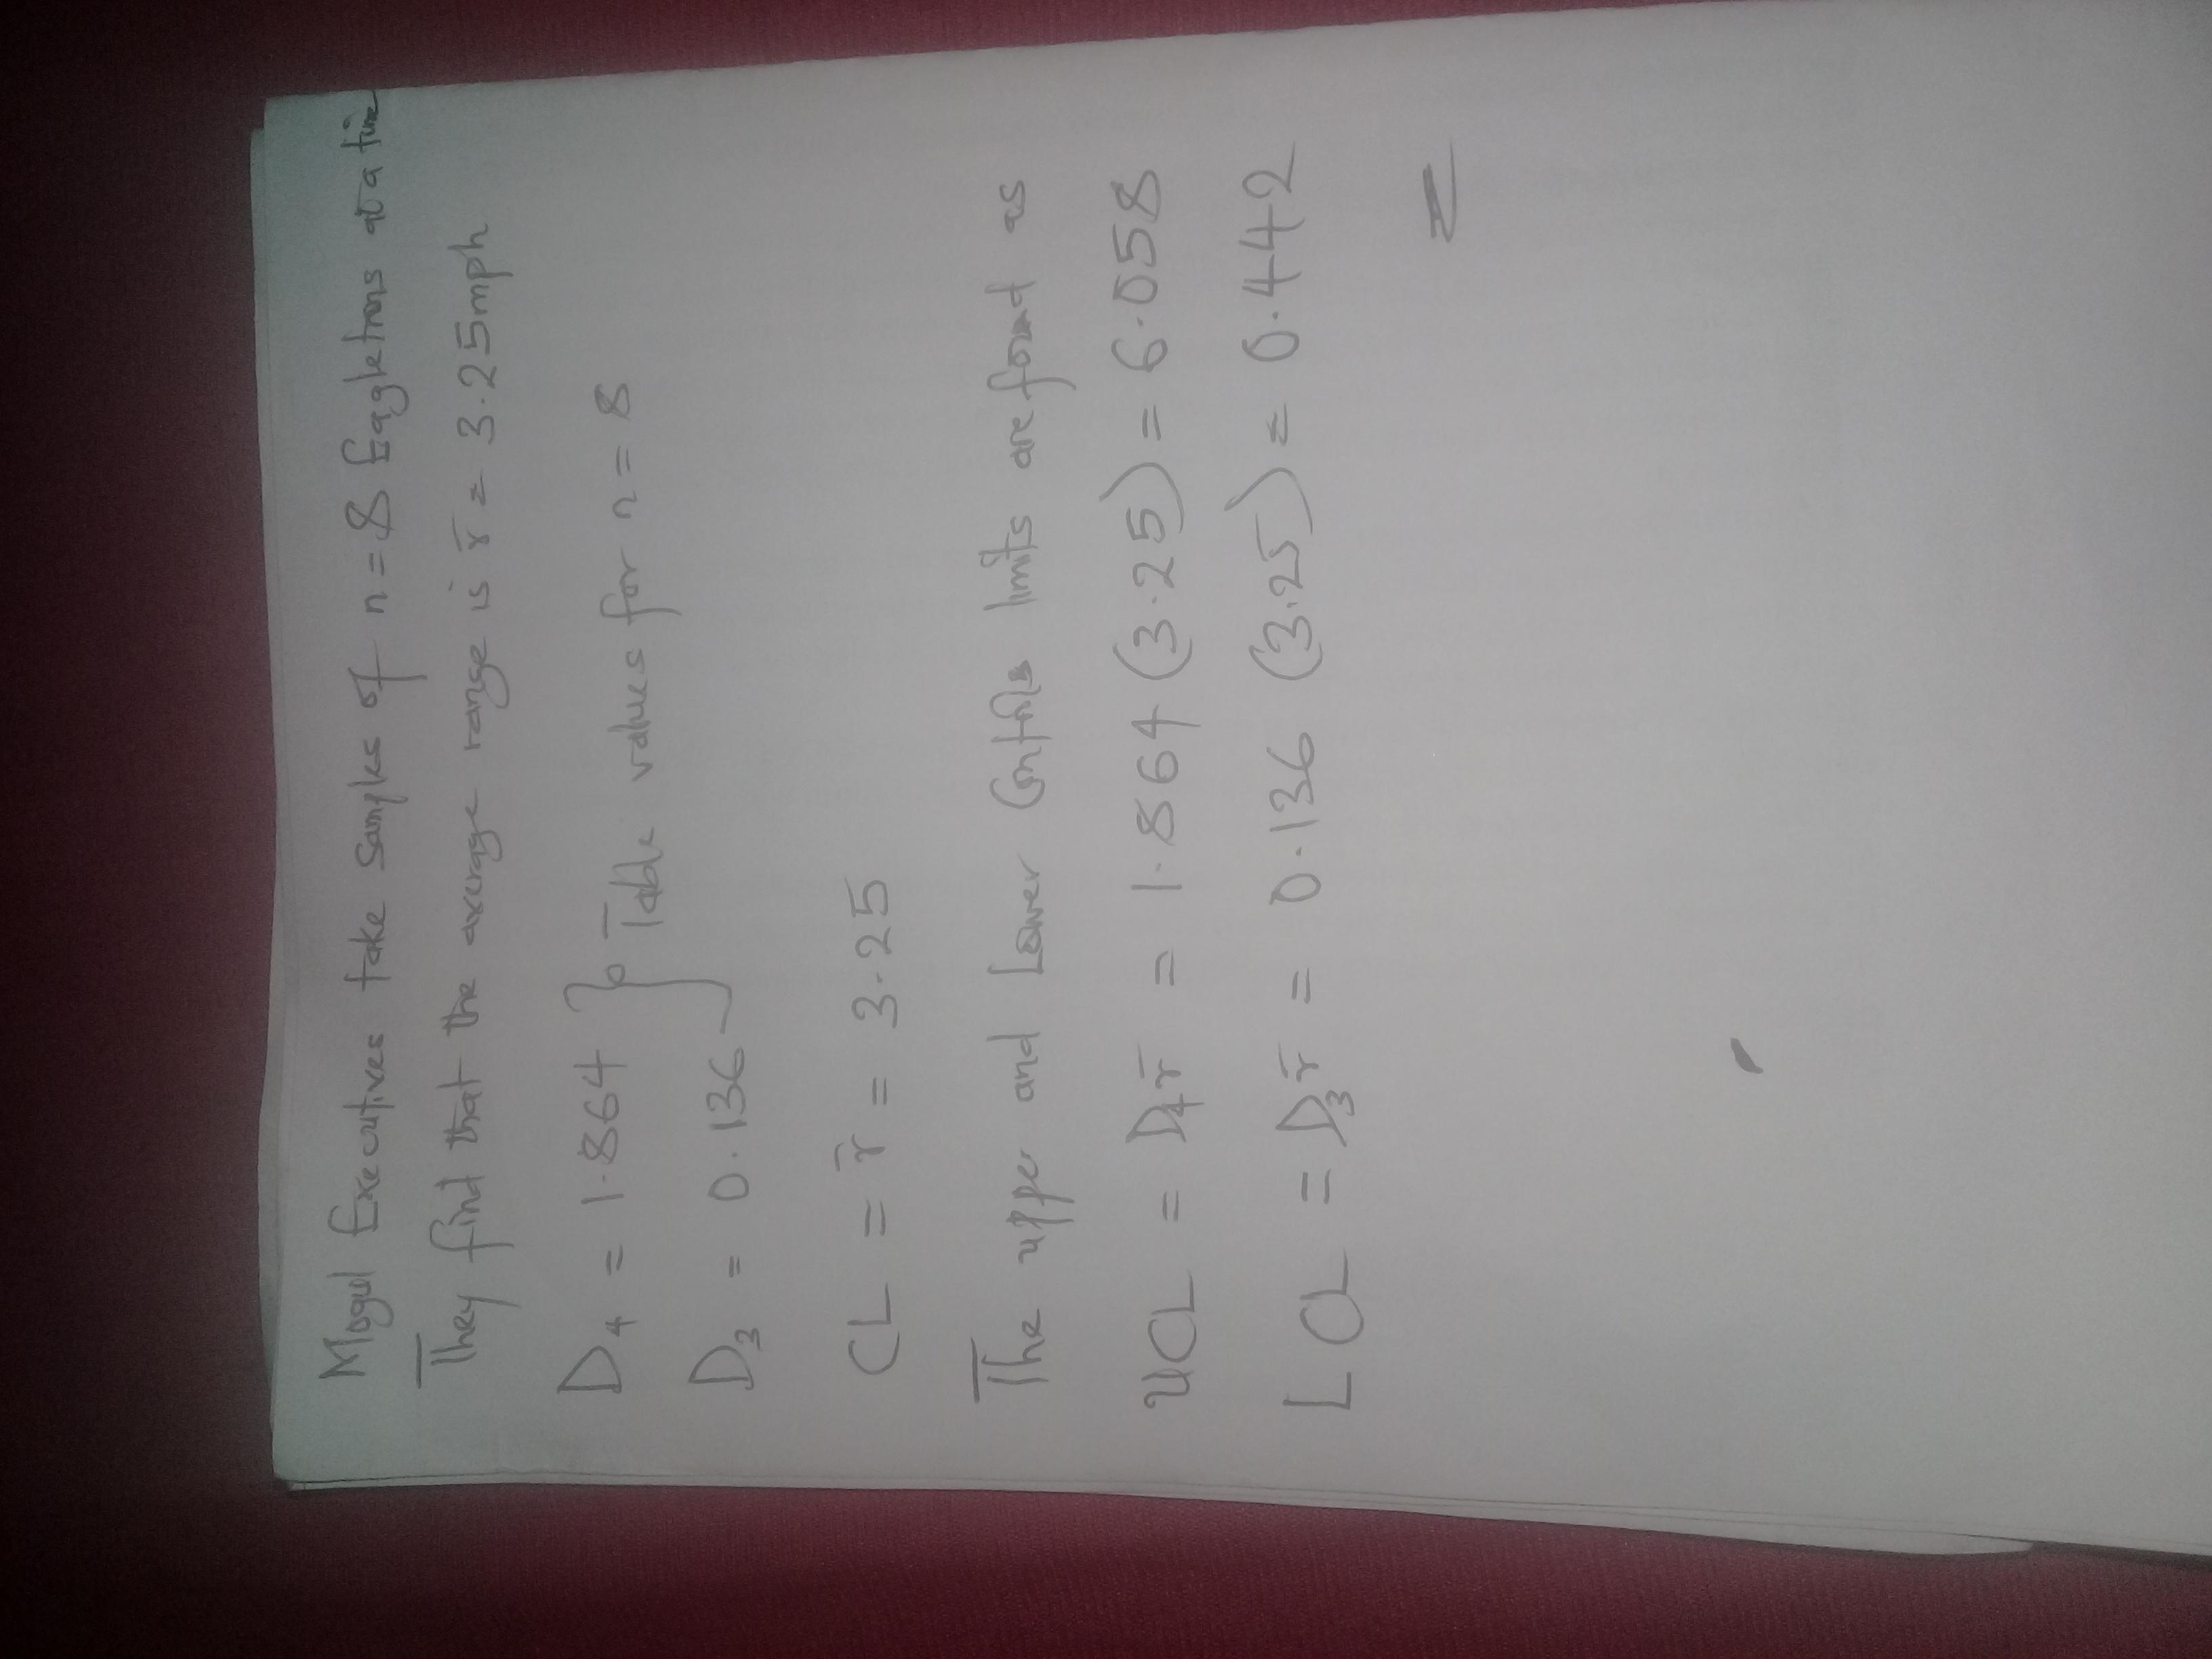 Mogul Executives take Samples of n = 8 Eagletrons at a time
They find that the average range is r̄ = 3.25mph
D₄ = 1.864 } Table values for n = 8
D₃ = 0.136
CL = r̄ = 3.25
The upper and Lower Controls limits are found as
UCL = D₄r̄ = 1.864 (3.25) = 6.058
LCL = D₃r̄ = 0.136 (3.25) = 0.442